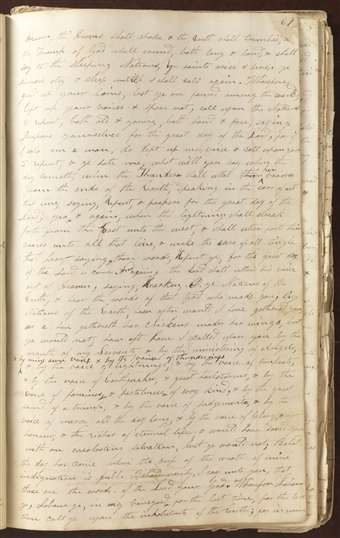 61
the Heavens shall shake & the Earth shall tremble, &
the Trump of God shall sound, both long & loud, & shall
say to the sleeping Nations, ye saints arise & live; ye
sinners stay & sleep until I shall call again. Wherefore
gird up your loins, lest ye are found among the wicked
Lift up your voices & spare not, call upon the Nations
to repent, both old & young, both bond & free, saying
Prepare yourselves for the great day of the Lord, for if
I who am a man, do lift up my voice & call upon you
to repent, & ye hate me, what will you say when the
day cometh, when the Thunders shall utter their voices
from the ends of the Earth, speaking in the ears of all
that live, saying, Repent & prepare for the great day of the
Lord; yea, & again, when the lightnings shall streak
forth from the East unto the west, & shall utter forth their
voices unto all that live, & make the ears of all tingle
that hear, saying these words, Repent ye, for the great day
of the Lord is come. And again, the Lord shall utter his voice
out of Heaven, saying, Hearken O ye Nations of the
Earth, & hear the words of that God who made you. O ye
Nations of the Earth, how often would I have gathered you
as a hen gathereth her chickens under her wings, but
ye would not; how oft have I called upon you by the
mouth of my Servents & by the ministering of Angels,
& by mine own voice & by the voice of thunderings
& by the voice of lightnings, & by the voice of tempests,
& by the voice of Earthquakes, & great hailstorms, & by the
voice of famines, & pestilences of every kind, & by the great
sound of a trump, & by the voice of judgements, & by the
voice of mercy all the day long, & by the voice of glory, &
honour, & the riches of eternal life, & would have saved you
with an everlasting salvation, but ye would not; Behold,
the day has come when the cup of the wrath of mine
indignation is full. Behold verily I say unto you, that
these are the words of the Lord your God, Wherefore Labour
ye, Labour ye, in my vineyard for the last time, for the last
time call ye upon the inhabitants of the Earth; for in mine